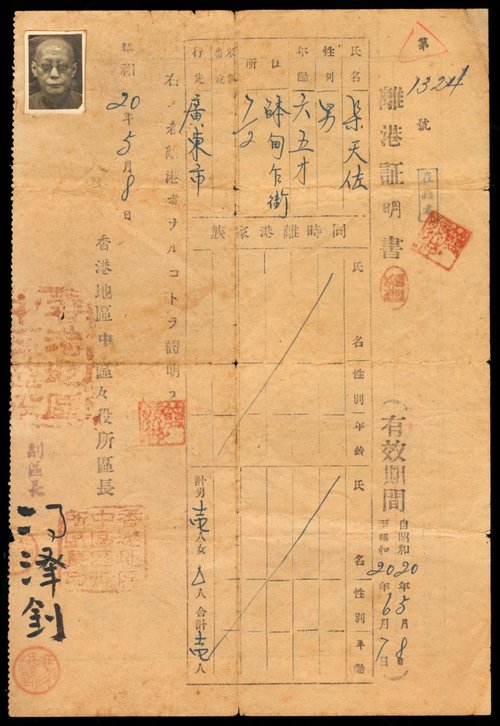 第1324號
離港証明書
(有效期間 自昭和20年5月8日
至昭和20年6月7日)
氏名 梁天佐
性別 男
年齡 六五才
住所 砵甸乍街
1/2
行先 廣東市
同時離港家族
氏名 性別 年齡
氏名 性別 年齡
計男壹人女 人合計壹人
右ノ者離港者ナルコトヲ證明ス
昭和20年5月8日
香港地區中區々役所區長
副區長
冯泽釗